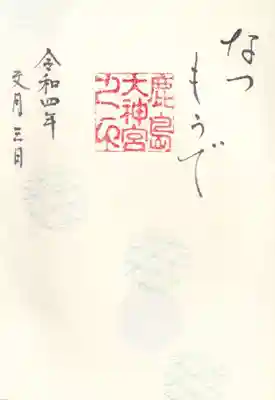 なつ
もうで
鹿島
大神宮
之印
令和四年
文月三日